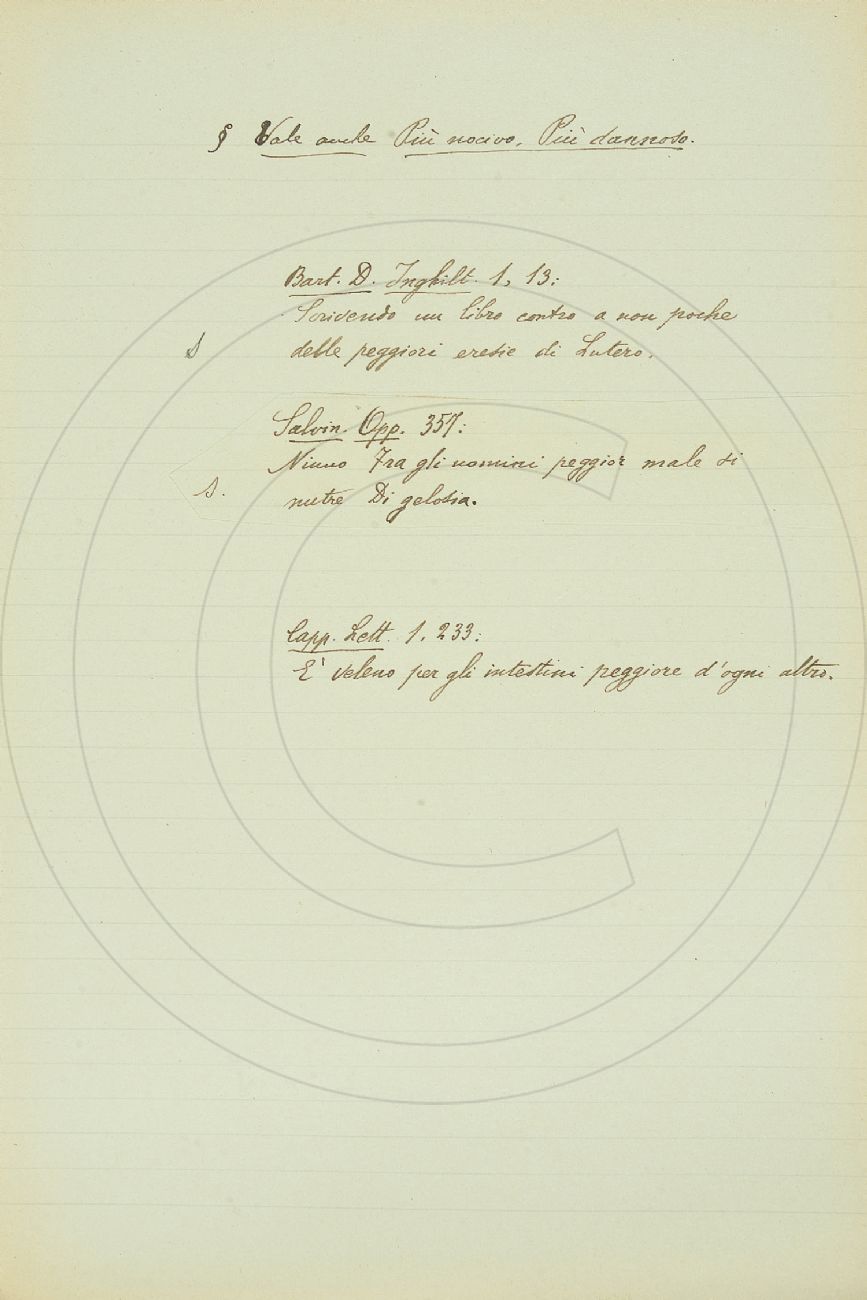 § Vale anche Più nocivo, Più dannoso.
Bart. D. Inghilt. 1, 13:
Scrivendo un libro contro a non poche
S delle peggiori eresie di Lutero.
Salvin. Opp. 357:
Niuno Fra gli uomini peggior male si
S. nutre Di gelosia.
Capp. Lett. 1, 233:
E' veleno per gli intestini peggiore d'ogni altro.